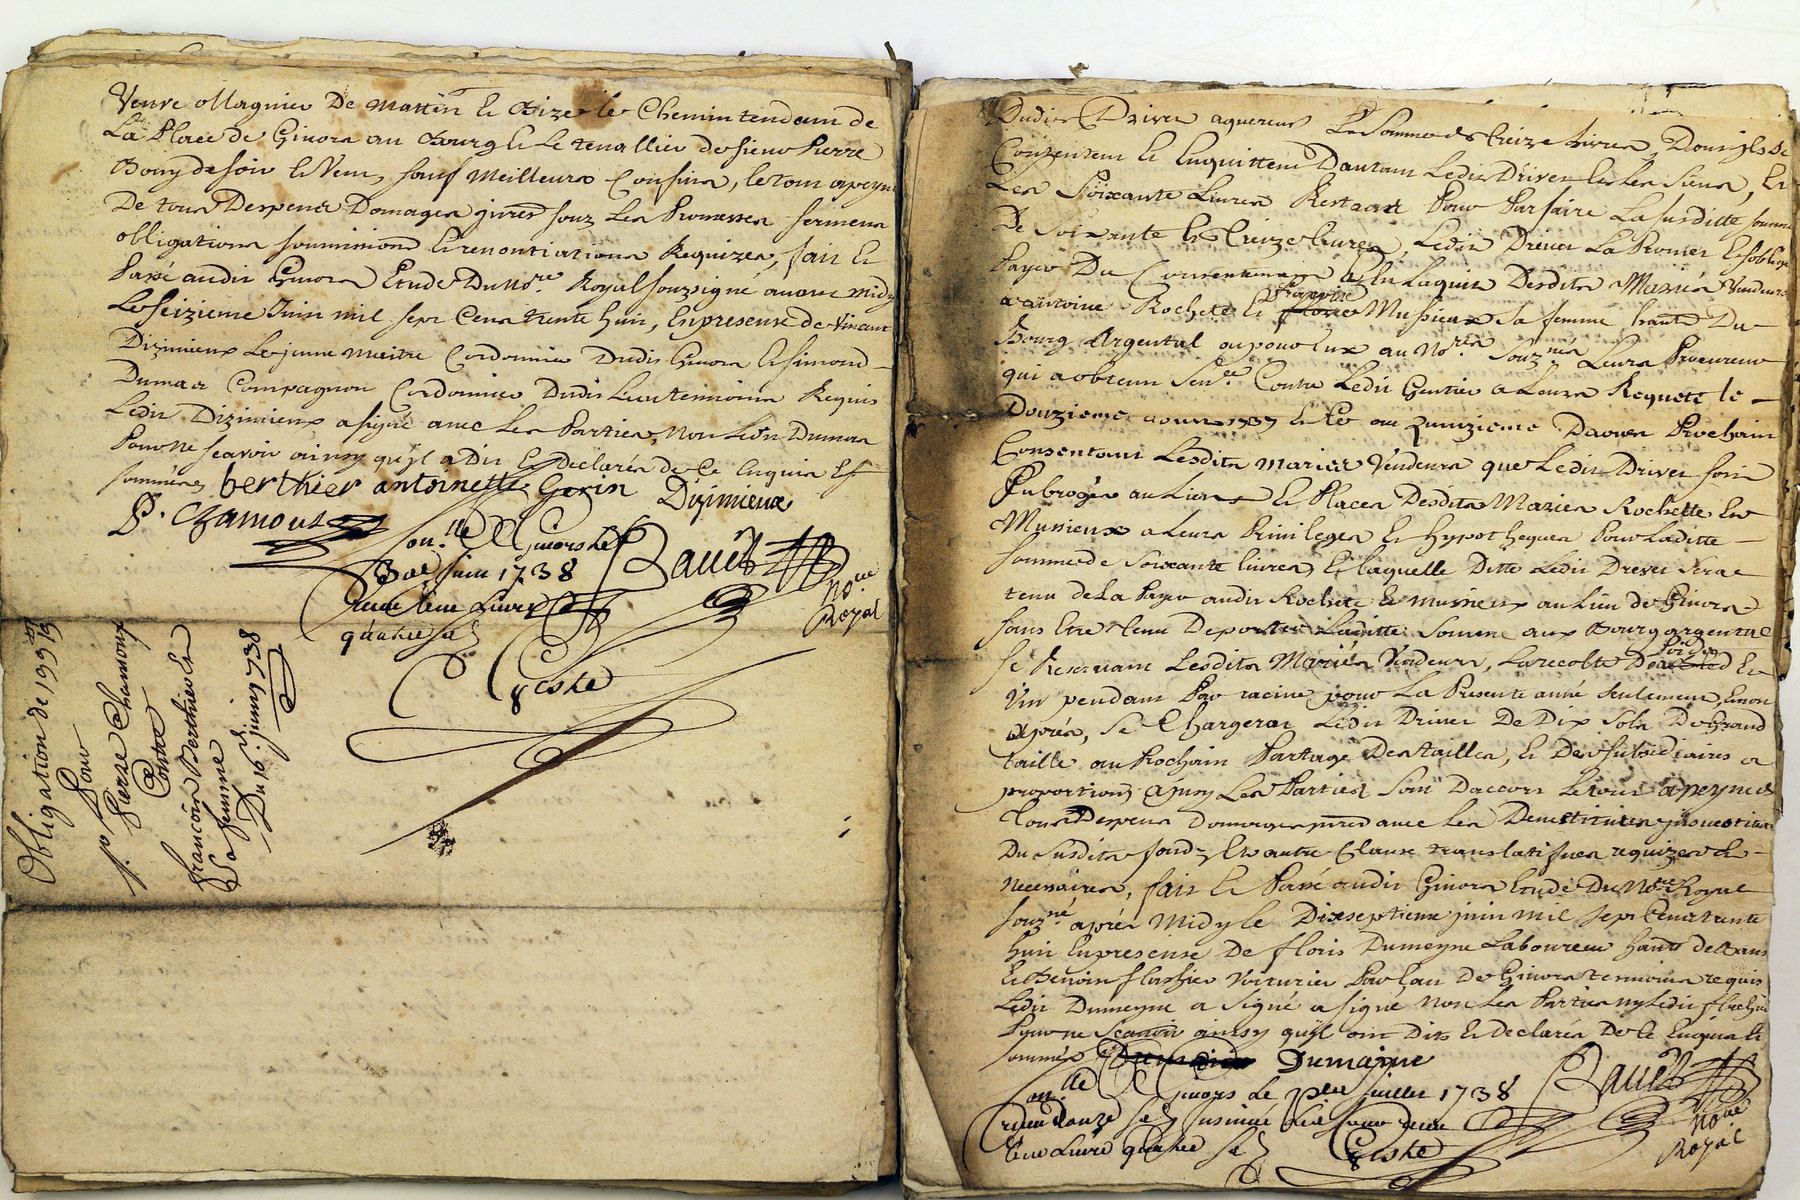 Veuve Magnier De matin & Bize le Chemin tendant de
La Place de Givors au Bourg & le tenallier de sieur Pierre
Bony de soir & Vent, sauf Meilleurs Confins, le tout a peyne
De tous Despens Domages jnrest souz Les Promesses sermens
obligations soummissions & renontiations Requizes, fait &
Passé audit Givors Etude Du Nore Royal souzsigné avant midy
Le seizieme Juin mil sept Cens trente huit, En presense de Vincent
Dizimieux Le jeune maitre Cordonnier Dudit Givors & simond
Dumas Compagnon Cordonnier Dudit Lieu temoins Requis
Ledit Dizimieux a signé avec Les Parties, Non Ledit Dumas
Pour ne scavoir ainsy qu'il a Dit & Declaré de Ce Enquis &
sommés, berthier antoinette Gerin Dizimieux
P. Chamoux
Con.lle A Givors le
30e juin 1738 Ravet
No.re
Royal
quatre s
Geste
Obligation de 199tt 19s
Pour
Sr. Pierre Chamoux
Contre
francois Berthier &
Sa femme
Du 16e. juin 1738
Dudit Driver aquereur La Somme de treize Livres, Dont ils se
Contentent & Enquittent Dautant Ledit Driver & Les Siens, &
Les Soixante Livres Restant Pour Parfaire La susditte somme
De soixante & treize Livres, Ledit Driver La Promet & soblige
Payer Du Consentement & a Laquit Desdits Mariés Vendeurs
a antoine Rochette & Musieux sa femme hants Du
Bourg Argental ou pour Eux au No.re Souz.né Leurs Procureur
qui a obtenu Sen.ce Contre Ledit Gentier a Leurs Requete le
Douzieme aoust 1737 & Ce au quinzieme Daoust Prochain
Consentant Lesdits mariés Vendeurs que Ledit Driver soit
subrogés au Lieu & Places Desdits Mariés Rochette &
Musieux a Leurs Privileges & hypotheques Pour Laditte
somme de Soixante livres, & laquelle Ditte Ledit Driver sera
tenu de La Payer audit Rochette & Musieux au Lieu de Givors
sans Etre tenu De porter Laditte Somme aux Bourg argental
se Reservant Lesdits Mariés Vendeurs, La recolte De &
Vin pendant Par racine pour La Presente anné seulement, & non
Aprés, se Chargerat Ledit Driver De Dix Sols De Grand
taille au Prochain Partage Des tailles, & Des subsidiaires a
proportion, Ainsy Les Parties Sont Daccord Le tout a peyne de
tous Depens Domages jnrest avec Les Devestitures jnvestitures
Du susdits fond, & autre Clause translatifves requizes &
necessaires, fait & Passé audit Givors Etude Du No.re Royal
souz.né aprés Midy le Dixseptieme juin mil sept Cens trente
huit En presense De floris Dumeyne Laboureur hants de
& Benoit flachier Voiturier Par Eau De Givors temoins requis
Ledit Dumeyne a Signé a signé Non Les Parties ny Ledit flachier
Pour ne Scavoir ainsy qu'il ont Dits & declarés De Ce Enquis &
sommés Dumaine
Con.lle A Givors Le Juillet 1738 Ravet
Receu Douze s jnsinué Led. jour
Livre quatre s Geste
No.re
Royal